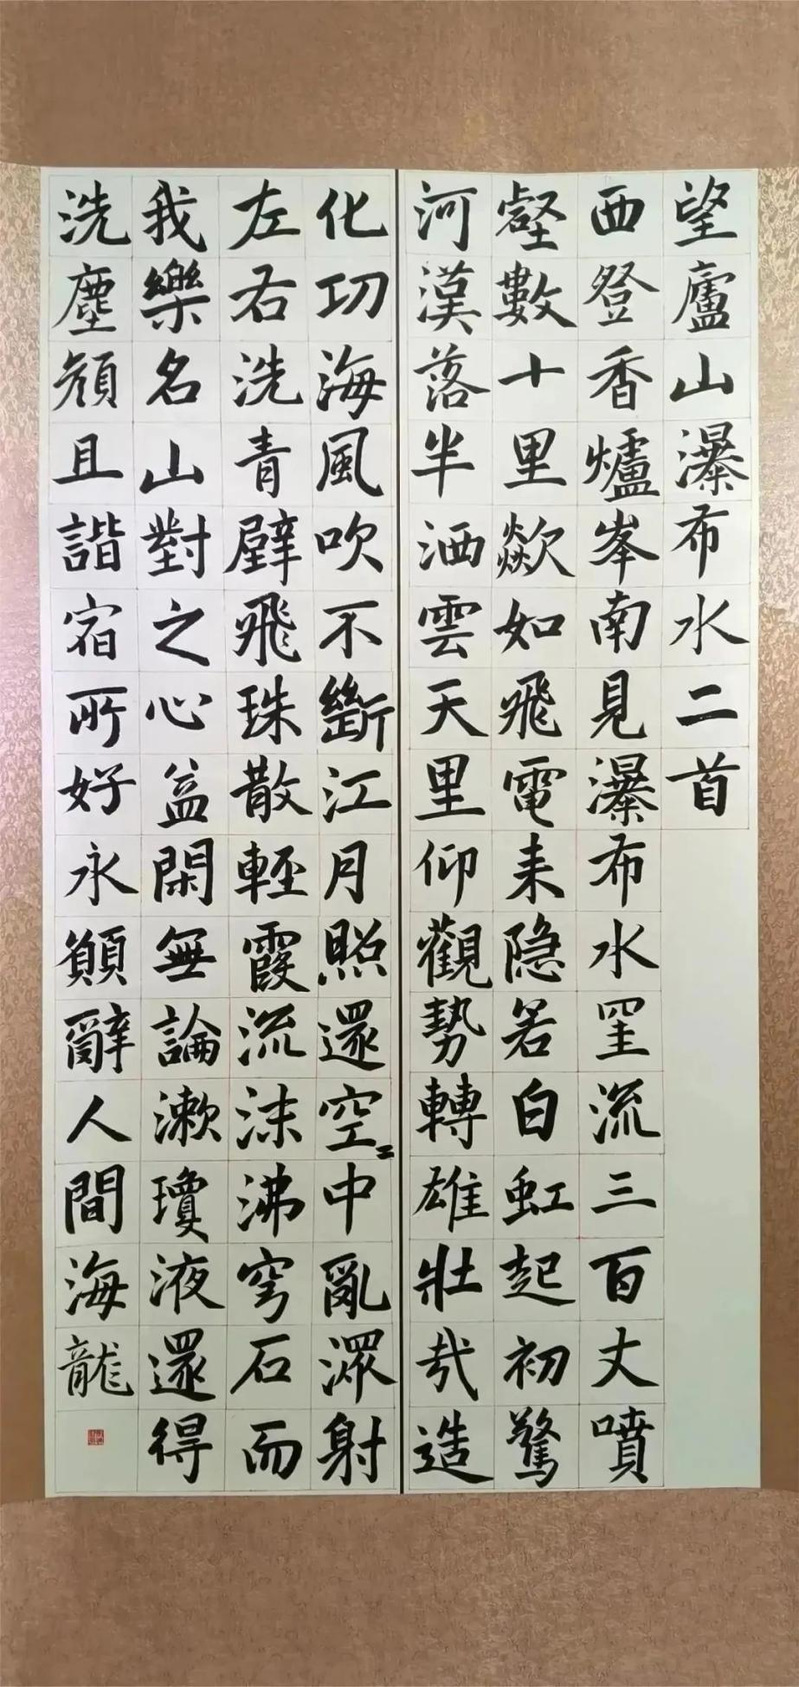 望廬山瀑布水二首
西登香爐峯南見瀑布水罣流三百丈噴
壑數十里歘如飛電来隐若白虹起初驚
河漢落半洒雲天里仰觀勢轉雄壯哉造
化功海風吹不斷江月照還空=中亂潈射
左右洗青壁飛珠散輕霞流沫沸穹石而
我樂名山對之心益閑無論漱瓊液還得
洗塵顔且諧宿所好永願辭人間海龍